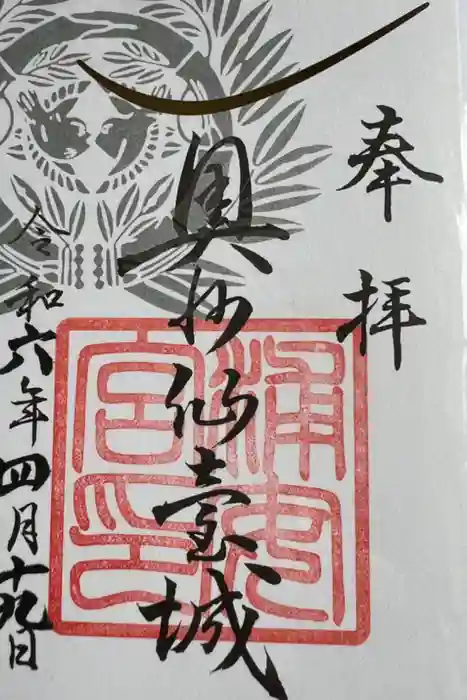 奉拝
奥州仙臺城
令和六年四月十九日
浦安
宮印